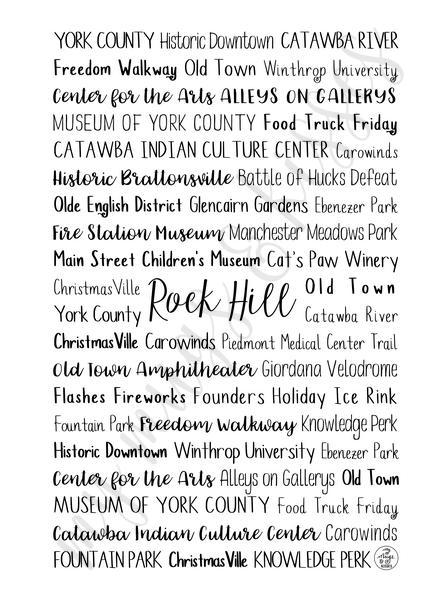 YORK COUNTY Historic Downtown CATAWBA RIVER
Freedom Walkway Old Town Winthrop University
Center for the Arts ALLEYS ON GALLERYS
MUSEUM OF YORK COUNTY Food Truck Friday
CATAWBA INDIAN CULTURE CENTER Carowinds
Historic Brattonsville Battle of Hucks Defeat
Olde English District Glencairn Gardens Ebenezer Park
Fire Station Museum Manchester Meadows Park
Main Street Children's Museum Cat's Paw Winery
ChristmasVille
York County
Rock Hill
Old Town
Catawba River
ChristmasVille Carowinds Piedmont Medical Center Trail
Old Town Amphitheater Giordana Velodrome
Flashes Fireworks Founders Holiday Ice Rink
Fountain Park Freedom Walkway Knowledge Perk
Historic Downtown Winthrop University Ebenezer Park
Center for the Arts Alleys on Gallerys Old Town
MUSEUM OF YORK COUNTY Food Truck Friday
Catawba Indian Culture Center Carowinds
FOUNTAIN PARK ChristmasVille KNOWLEDGE PERK